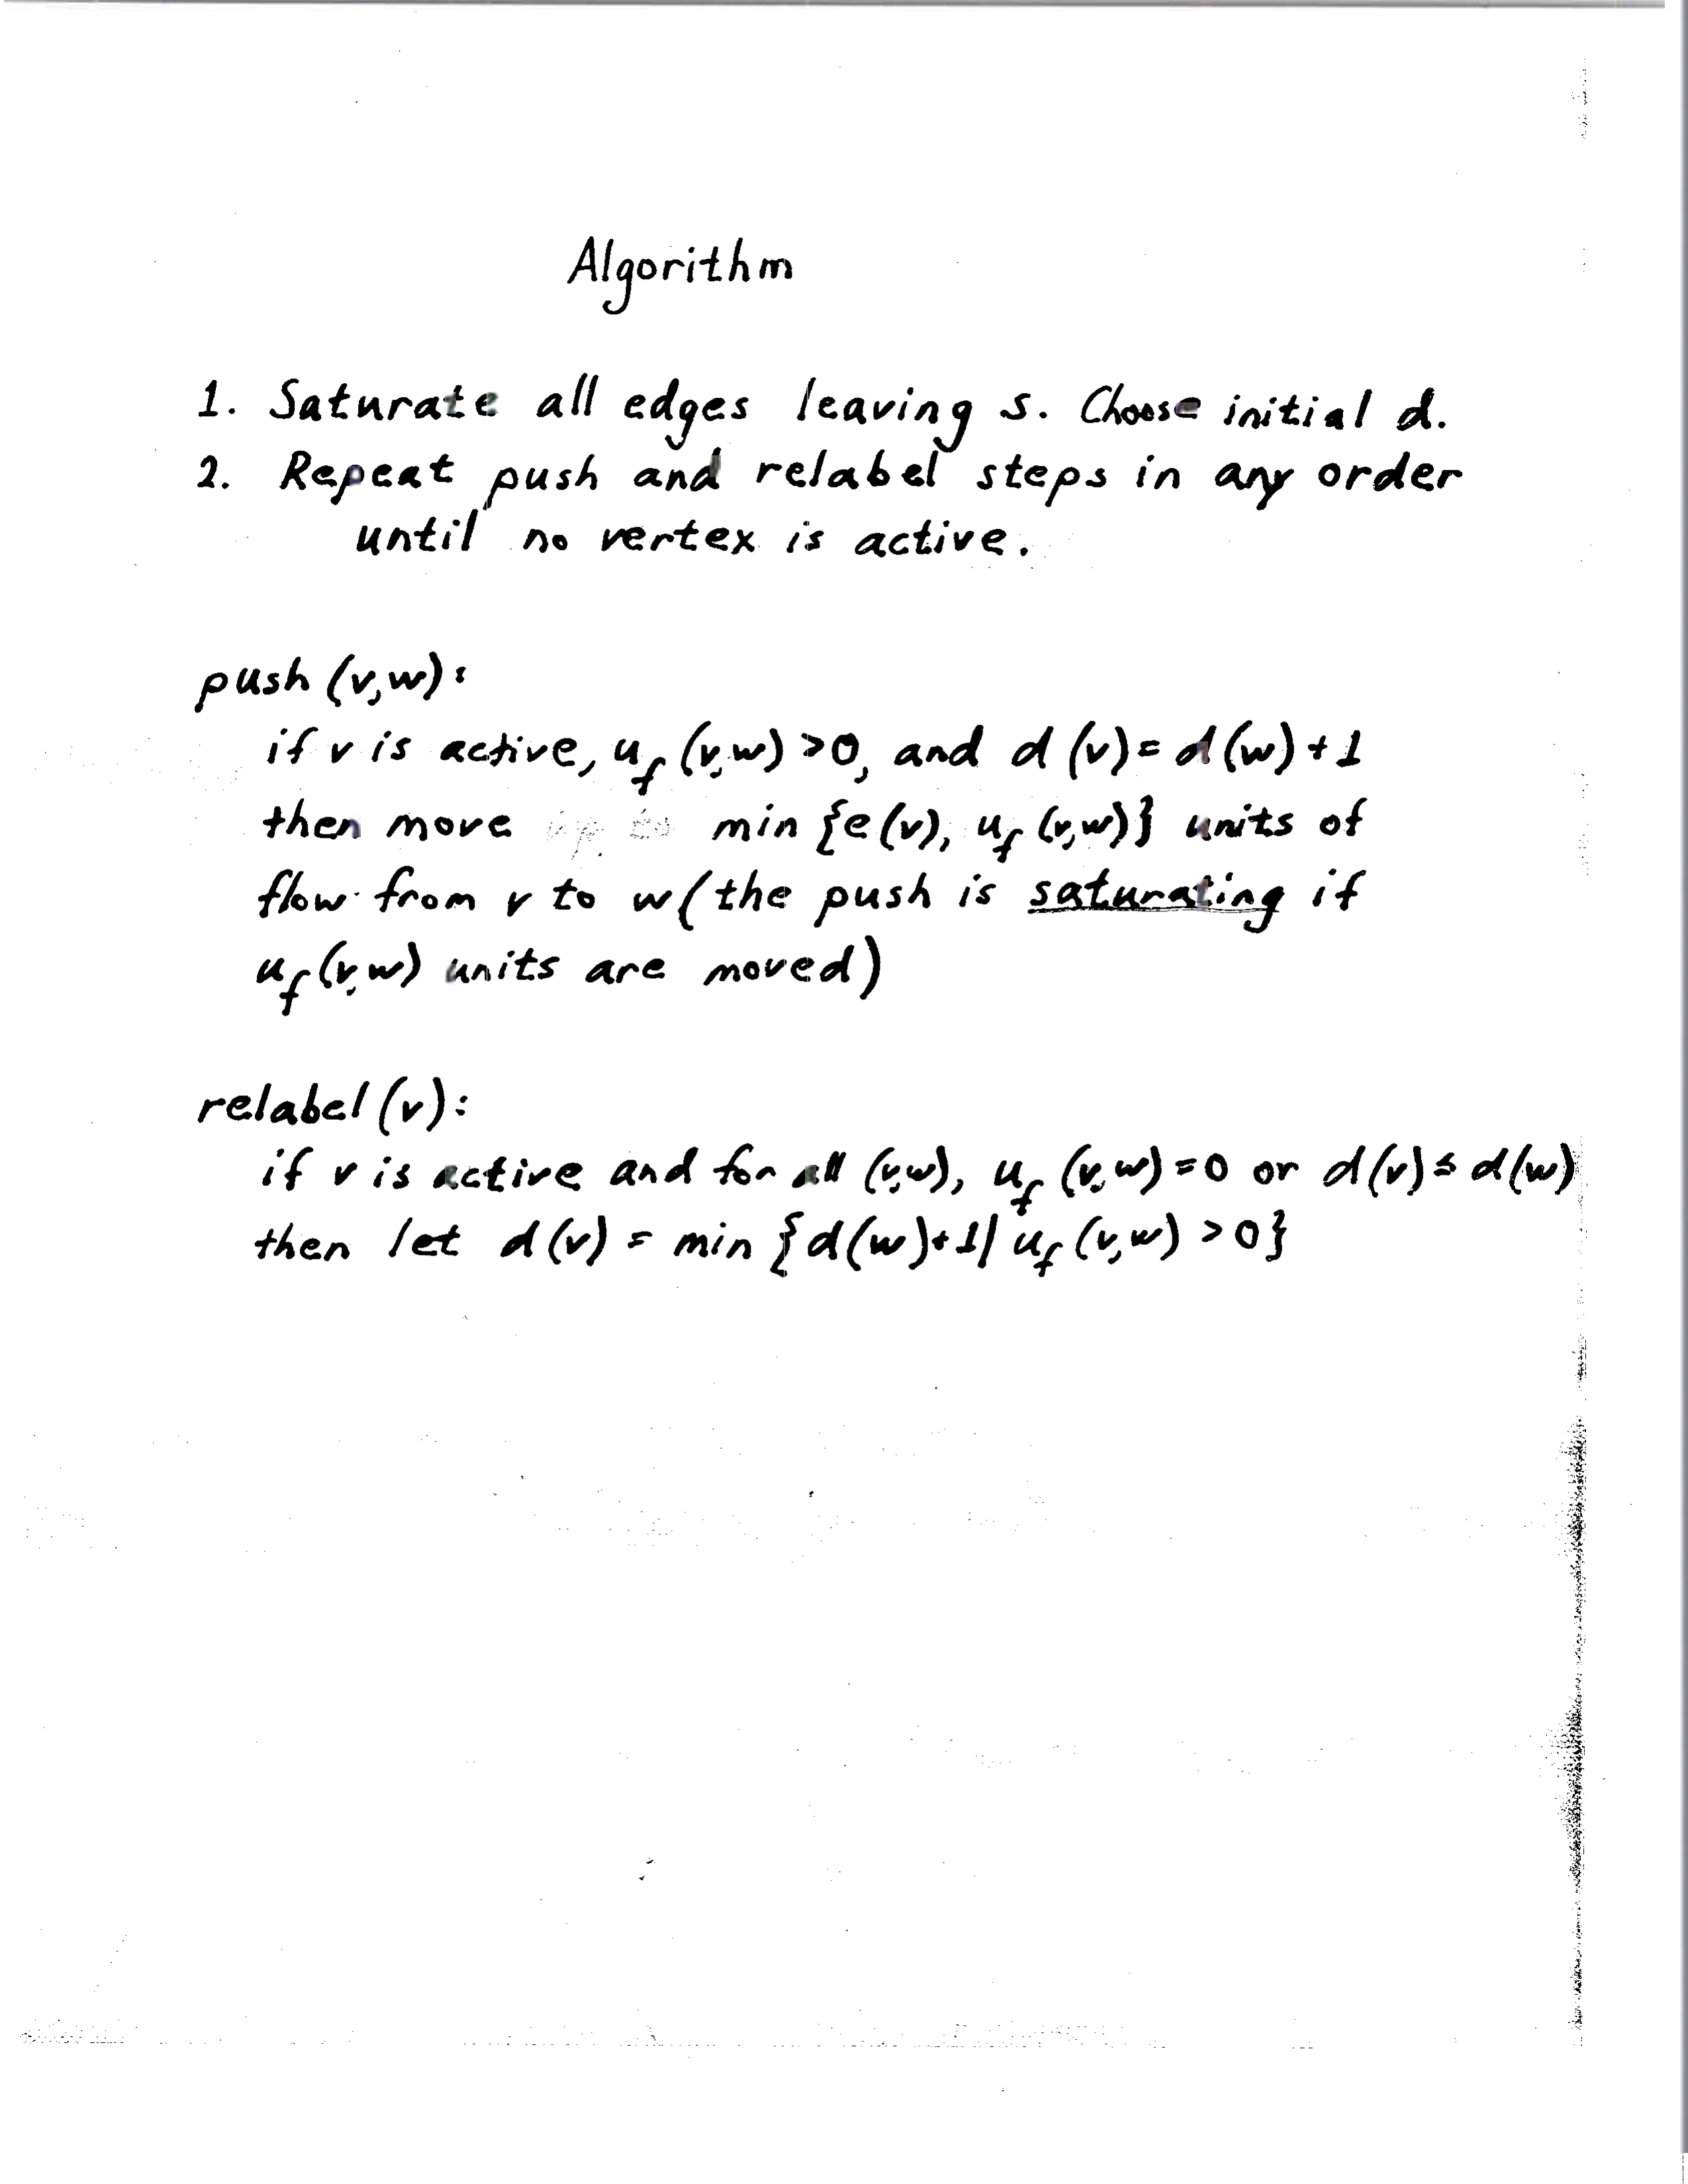 Algorithm
1. Saturate all edges leaving s. Choose initial d.
2. Repeat push and relabel steps in any order
until no vertex is active.
push (v,w):
if v is active, u_f (v,w) >0, and d (v) = d(w) + 1
then move min {e(v), u_f (v,w)} units of
flow from v to w (the push is saturating if
u_f (v,w) units are moved)
relabel (v):
if v is active and for all (v,w), u_f (v,w) = 0 or d(v) ≤ d(w)
then let d(v) = min {d(w)+1 | u_f (v,w) > 0}